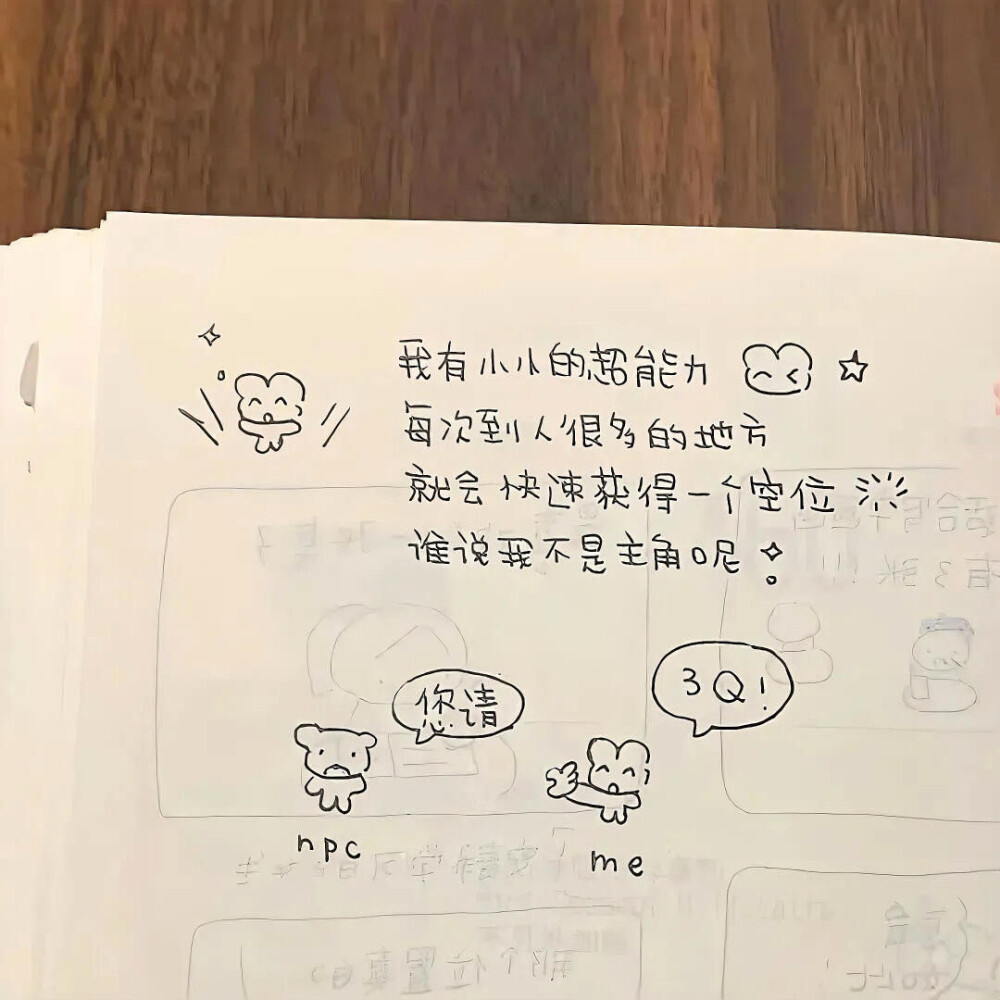 我有小小的超能力
每次到人很多的地方
就会快速获得一个空位
谁说我不是主角呢
您请
3Q!
npc
me